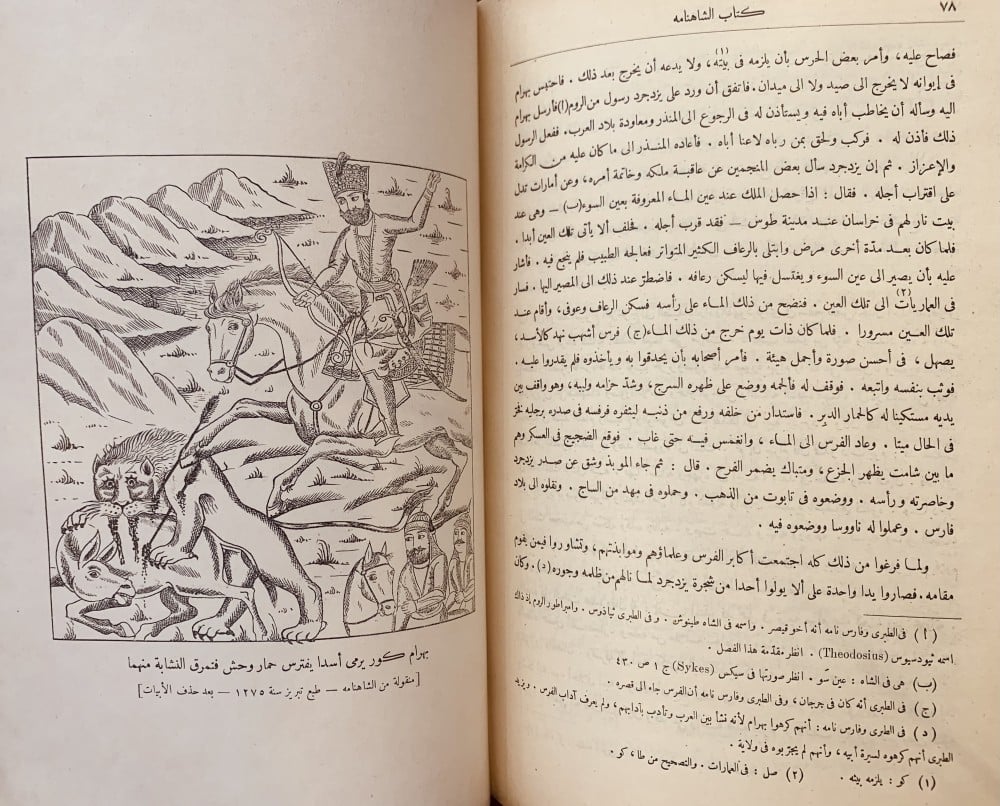 ٧٨
كتاب الشاهنامه
فصاح عليه، وأمر بعض الحرس بأن يلزمه فى بيته(١)، ولا يدعه أن يخرج بعد ذلك . فاحتبس بهرام
فى إيوانه لا يخرج الى صيد ولا الى ميدان . فاتفق أن ورد على يزدجرد رسول من الروم(ا) فأرسل بهرام
اليه وسأله أن يخاطب أباه فيه ويستأذن له فى الرجوع الى المنذر ومعاودة بلاد العرب . ففعل الرسول
ذلك فأذن له . فركب ولحق بمن رباه لاعنا أباه . فأعاده المنذر الى ما كان عليه من الكرامة
والإعزاز . ثم إن يزدجرد سأل بعض المنجمين عن عاقبة ملكه وخاتمة أمره، وعن أمارات تدل
على اقتراب أجله . فقال : اذا حصل الملك عند عين الماء المعروفة بعين السوء(ب) — وهى عند
بيت نار لهم فى خراسان عند مدينة طوس — فقد قرب أجله . فحلف ألا يأتى تلك العين أبدا .
فلما كان بعد مدّة أخرى مرض وابتلى بالرعاف الكثير المتواتر فعالجه الطبيب فلم ينجع فيه . فأشار
عليه بأن يصير الى عين السوء ويغتسل فيها ليسكن رعافه . فاضطرّ عند ذلك الى المصير اليها . فسار
فى العماريات(٢) الى تلك العين . فنضح من ذلك الماء على رأسه فسكن الرعاف وعوفى، وأقام عند
تلك العين مسرورا . فلما كان ذات يوم خرج من ذلك الماء(ج) فرس أشهب نهد كالأسد،
يصهل، فى أحسن صورة وأجمل هيئة . فأمر أصحابه بأن يحدقوا به و يأخذوه فلم يقدروا عليه .
فوثب بنفسه واتبعه . فوقف له فألجمه ووضع على ظهره السرج، وشدّ حزامه ولببه، وهو واقف بين
يديه مستكينا له كالحمار الدبِر . فاستدار من خلفه ورفع من ذنبه ليثفره فرفسه فى صدره برجليه فخر
فى الحال ميتا . وعاد الفرس الى الماء، وانغمس فيه حتى غاب . فوقع الضجيج فى العسكر وهم
ما بين شامت يظهر الجزع، ومتباك يضمر الفرح . قال : ثم جاء الموبذ وشق عن صدر يزدجرد
وخاصرته ورأسه . ووضعوه فى تابوت من الذهب . وحملوه فى مهد من الساج . ونقلوه الى بلاد
فارس . وعملوا له ناووسا ووضعوه فيه .
ولما فرغوا من ذلك كله اجتمعت أكابر الفرس وعلماؤهم وموابذتهم، وتشاوروا فيمن يقوم
مقامه . فصاروا يدا واحدة على ألا يولوا أحدا من شجرة يزدجرد لما نالهم من ظلمه وجوره(د) . وكان
(ا) فى الطبرى وفارس نامه أنه أخو قيصر . واسمه فى الشاه طينوش . وفى الطبرى ثياذوس . وامبراطور الروم إذ ذاك
اسمه ثيودسيوس (Theodosius) . انظر مقدّمة هذا الفصل .
(ب) هى فى الشاه : عين سَو . انظر صورتها فى سيكس (Sykes) ج ١ ص ٤٣٠
(ج) فى الطبرى أنه كان فى جرجان، وفى الطبرى وفارس نامه أن الفرس جاء الى قصره .
(د) فى الطبرى وفارس نامه : أنهم كرهوا بهرام لأنه نشأ بين العرب وتأدب بآدابهم، ولم يعرف آداب الفرس . ويزيد
الطبرى أنهم كرهوه لسيرة أبيه، وأنهم لم يجرّبوه فى ولاية .
(١) كو : يلزمه بيته . (٢) صل : فى العمارات . والتصحيح من طا، كو .
بهرام كور يرمى أسدا يفترس حمار وحش فتمرق النشابة منهما
[منقولة من الشاهنامه — طبع تبريز سنة ١٢٧٥ — بعد حذف الأبيات]